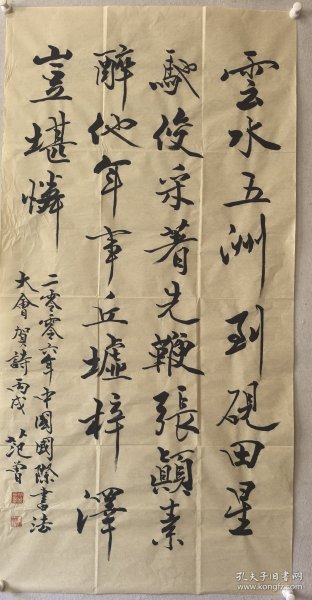 雲水五洲到硯田星
馳俊采着先鞭張顛素
醉他年事丘墟梓澤
豈堪憐
二零零六年中國國際書法
大會賀詩丙戌 范曾
孔夫子旧书网
www.kongfz.com